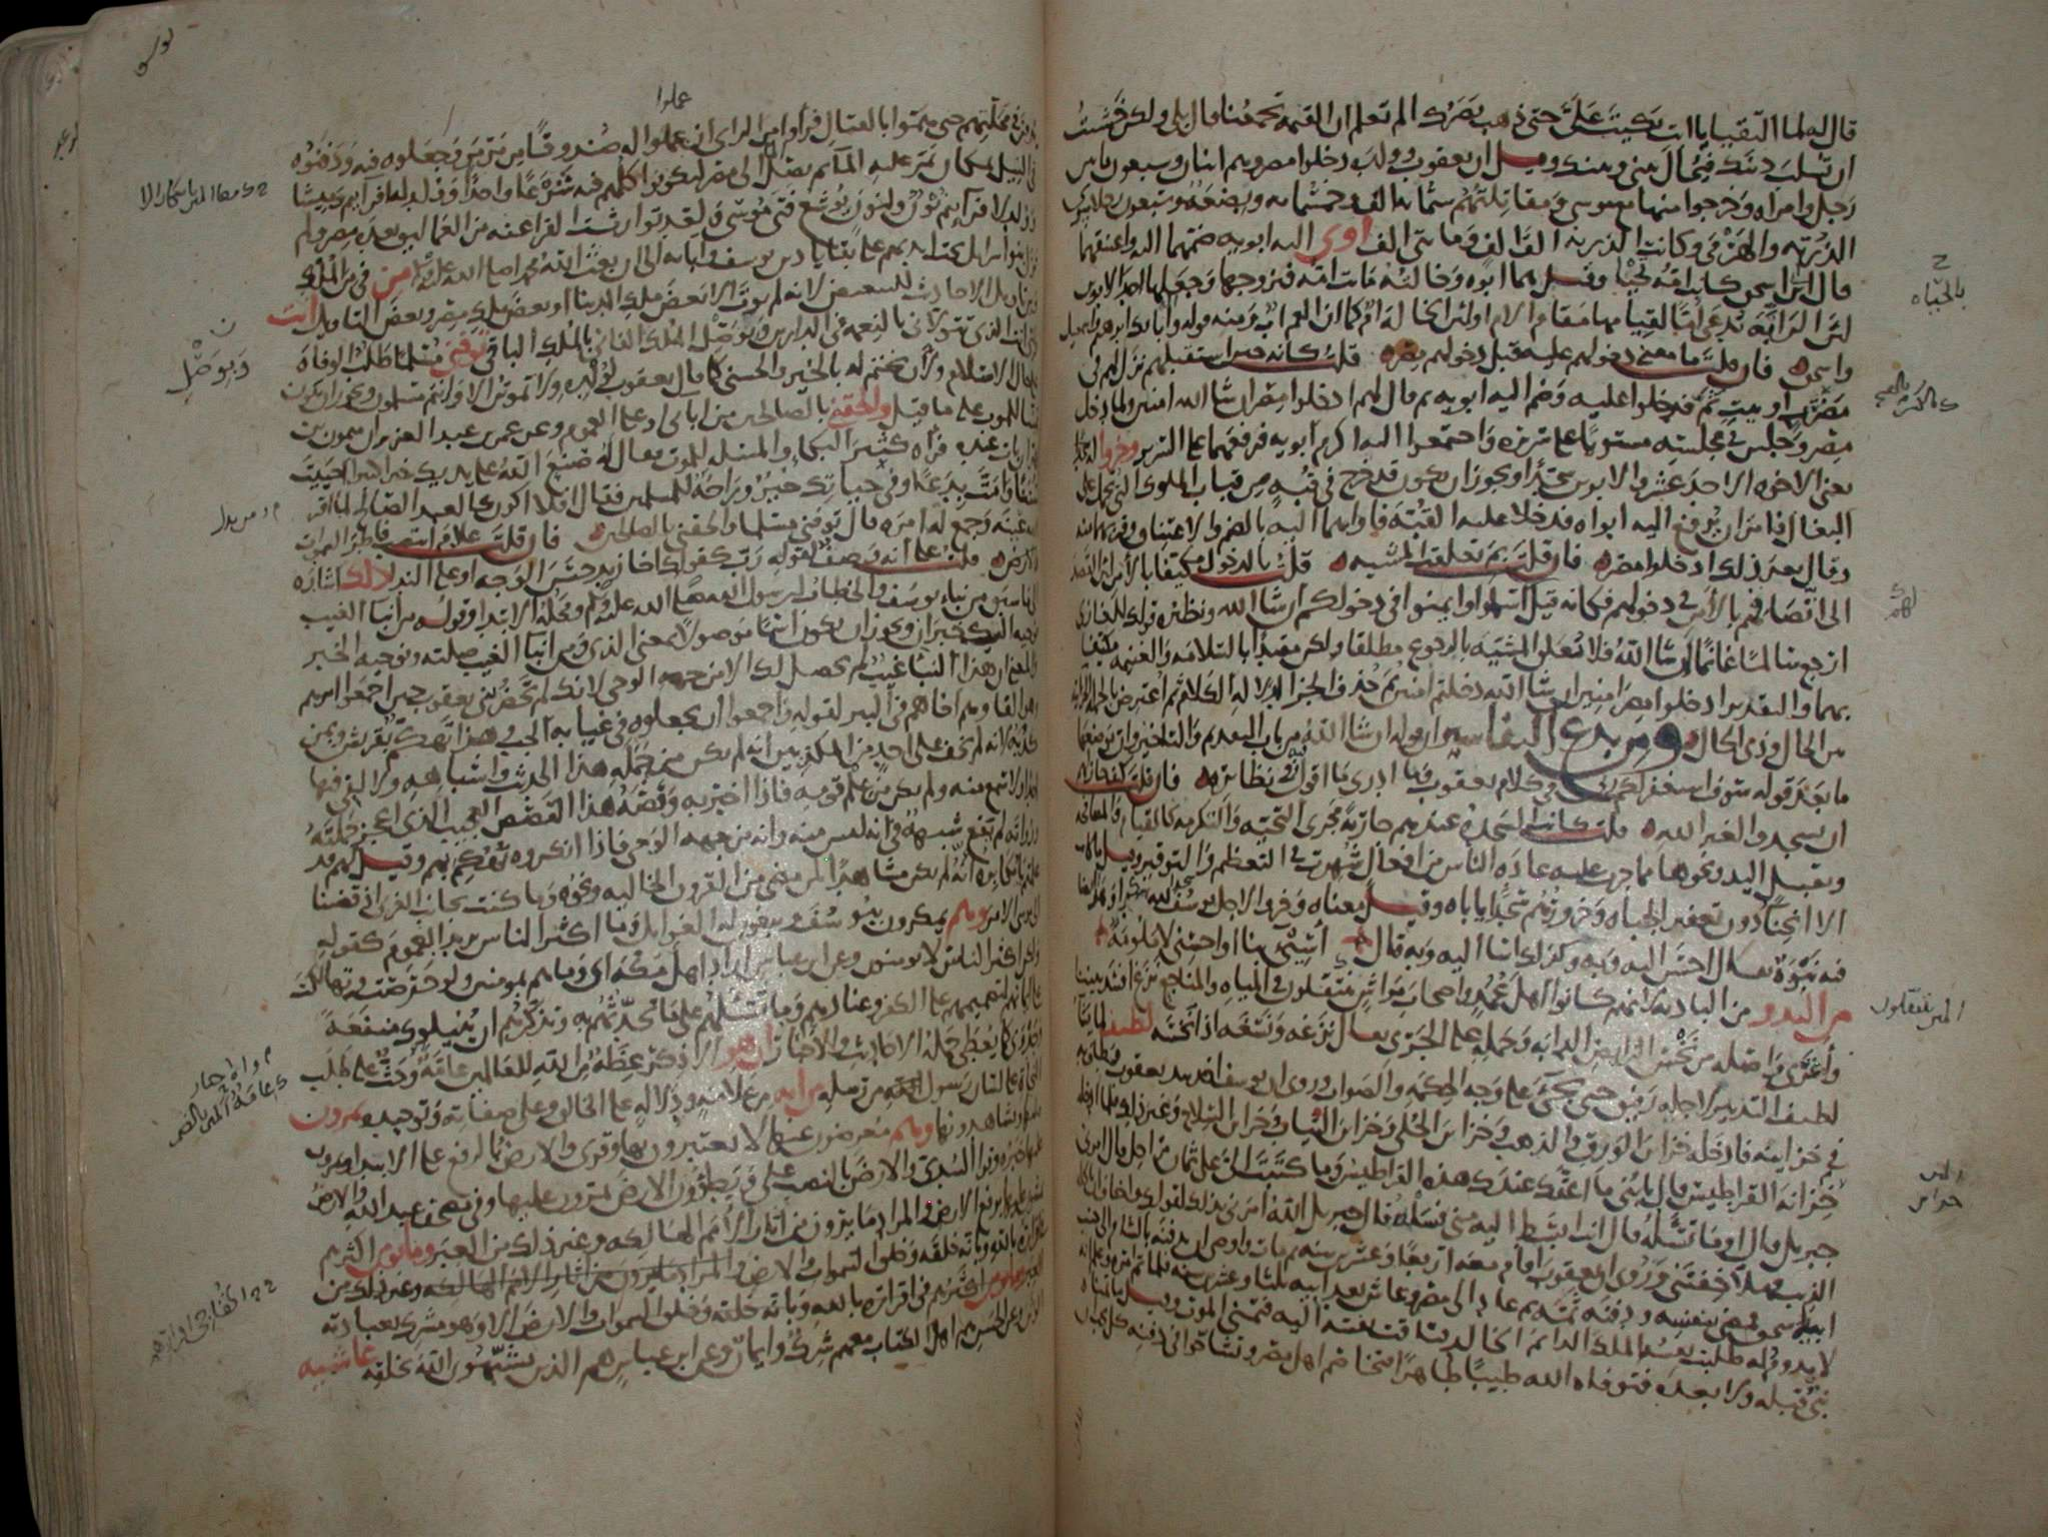 قال له لما التقيا يا ابت بكيت علىّ حتى ذهب بصرك الم تعلم ان القيمة تجمعنا قال بلى ولكن خشيت
ان تسلب دينك فيحال بينى وبينك وقيل ان يعقوب وولده دخلوا مصر وهم اثنان وسبعون مابين
رجل وامراه وخرجوا منها مع موسى ومقاتلتهم ستمائة الف وخمسمائه وبضعة وسبعون رجلا سوى
الذرية والهرمى وكانت الذرية الف الف ومايتى الف اوى اليه ابويه ضمهما اليه واعتنقهما
قال ابن اسحق كانت امه تحيا وقيل هما ابوه وخالته ماتت امه فتزوجها وجعلها احد الابوين
لان الرابّة تدعى امّا لقيامها مقام الام اولان الخالة امّ كما ان العم اب ومنه قوله واله ابايك ابرهيم واسمعيل
واسحق فان قلت ما معنى دخولهم عليه قبل دخولهم مصر قلت كانه حين استقبلهم نزل لهم فى
مضرب او بيت ثمّ فدخلوا عليه وضم اليه ابويه ثم قال لهم ادخلوا مصر ان شا الله امنين ولما دخل
مصر وجلس فى مجلسه مستويا على سريره واجتمعوا اليه اكرم ابويه فرفعهما على السرير وخروا له سجدا
يعنى الاخوة الاحد عشر والابوين سجّدا ويجوز ان يكون قد خرج فى قبّة من قباب الملوك التى تحمل على
البغال فامر ان يرفع اليه ابواه فدخلا عليه القبّة فاواهما اليه بالضم والاعتناق وقربهما منه
وقال بعد ذلك ادخلوا مصر فان قلت بم تعلقت المشيه قلت بالدخول مكيّفا بالامن لان القصد
الى اتصافهم بالامن فى دخولهم فكانه قيل اسلموا وامنوا فى دخولكم ان شا الله ونظيره قولك للغازى
ارجع سالما غانما ان شا الله فلا تعلق المشيه بالرجوع مطلقا ولكن مقيدا بالسلامه والغنيمه مكيّفا
بهما والتقدير ادخلوا مصر امنين ان شا الله دخلتم امنين ثم حذف الجزا لدلالة الكلام ثم اعترض بالجملة الجزائيه
بين الحال وذى الحال ومن بدع التفاسير ان قوله ان شا الله من باب التقديم والتاخير وان موضعها
ما بعد قوله سوف استغفر لكم فى كلام يعقوب وما ادرى ما اقول فيه وفى نظائره فان قلت كيف جاز لهم
ان يسجدوا لغير الله قلت كانت السجدة عندهم جارية مجرى التحيّه والتكرمه كالقيام والمصافحه
وتقبيل اليد ونحوها مما جرت عليه عادة الناس من افعال شهرت فى التعظيم والتوقير وقيل ما كانت
الا انحنا دون تعفير الجباه وخرورهم سجّدا ياباه وقيل معناه وخروا لاجل يوسف سجدا لله شكرا وهذا ايضا
فيه نبوة يقال احسن اليه وبه وكذلك اسا اليه وبه قال اسيئى بنا او احسنى لا ملومة
من البدو من البادية لانهم كانوا اهل عمد واصحاب مواش يتنقلون فى المياه والمناجع نزغ افسد بيننا
واغرى واصله من نخس الرايض الدابه وحمله على الجرى يقال نزغه ونسغه اذا نخسه لطيف لما يشا
لطيف التدبير لاجله رفيق حتى يجئ على وجه الحكمة والصواب وروى ان يوسف اخذ بيد يعقوب فطاف به
فى خزاينه فادخله خزاين الورق والذهب وخزاين الحلى وخزاين الثياب وخزاين السلاح وغير ذلك فلما ادخله
خزانة القراطيس قال يا بنى ما اعقّك عندك هذه القراطيس وما كتبت الىّ على ثمان مراحل قال امرنى
جبريل قال اوما تسله قال انت ابسط اليه منى فسله قال جبريل الله امرنى بذلك لقولك واخاف ان ياكله
الذيب فهلا خفتنى وروى ان يعقوب اقام معه اربعا وعشرين سنه ثم مات واوصى ان يدفنه بالشام الى جنب
ابيه اسحق فمضى بنفسه ودفنه ثمه ثم عاد الى مصر وعاش بعد ابيه ثلثا وعشرين سنه فلما تم امره وعلم انه
لا يدوم له طلبت نفسه الملك الدايم الخالد فتاقت نفسه اليه فتمنى الموت وقيل ما تمناه
نبى قبله ولا بعده فتوفاه الله طيبا طاهرا فتخاصم اهل مصر وتشاحوا فى دفنه كل يحب ان
بالجباه
لهم
المى يتنقلون
يدفن فى محلتهم حتى همّوا بالقتال فراوا من الراى ان عملوا له صندوقا من مرمر وجعلوه فيه ودفنوه
عملوا
فى النيل بمكان يمر عليه الما ثم يصل الى مصر ليكونوا كلهم فيه شرعا واحدا وولد له افراييم وميشا
وولد لافراييم نون ولنون يوشع فتى موسى ولقد توارثت الفراعنه من العماليق بعده مصر ولم
يزل بنوا اسرايل تحت ايديهم على بقايا دين يوسف وابايه الى ان بعث الله موسى صلى الله عليه وسلم من فى من الملك
ومن تاويل الاحاديث للتبعيض لانه لم يوت الا بعض ملك الدنيا او بعض ملك مصر وبعض التاويل انت
وليى انت الذى تتولانى بالنعمه فى الدارين وتوصل الملك الفانى بالملك الباقى توفنى مسلما طلب للوفاة
على حال الاسلام ولان يختم له بالخير والحسنى كما قال يعقوب لولده ولا تموتن الا وانتم مسلمون ويجوز ان يكون
تمنيا للموت على ما قيل والحقنى بالصالحين من اباى او على العموم وعن عمر بن عبد العزيز ان ميمون بن
مهران بات عنده فراه كثير البكاء والمسئله للموت فقال له صنع الله على يديك خيرا كثيرا احييت
سننا وامتّ بدعا وفى حياتك خير وراحة للمسلمين فقال افلا اكون كالعبد الصالح لما اقر
الله عينه وجمع له امره قال توفنى مسلما والحقنى بالصالحين فان قلت علام انتصب فاطر السموات
والارض قلت على انه وصف لقوله رب كقولك اخا زيد حسن الوجه او على الندا ذلك اشارة
الى ما سبق من نباء يوسف والخطاب لرسول الله صلى الله عليه وسلم ومحله الابتدا وقوله من انبا الغيب
نوحيه اليك خبر ان ويجوز ان يكون اسما موصولا بمعنى الذى ومن انبا الغيب صلته ونوحيه الخبر
والمعنى ان هذا النبا غيب لم يحصل لك الا من جهه الوحى لانك لم تحضر بنى يعقوب حين اجمعوا امرهم
وهو القاوهم اخاهم فى البير لقوله واجمعوا ان يجعلوه فى غيابه الجب وهذا تهكم بقريش وبمن
كذبه لانه لم يخف على احد من المكذبين انه لم يكن من حملة هذا الحديث واشباهه ولا لقى فيها
احدا ولا سمع منه ولم يكن من علم قومه فاذا اخبر به وقصه هذا القصص العجيب الذى اعجز حملته
ورواته لم تقع شبهة فى انه ليس منه وانه من جهه الوحى فاذا انكروه تهكم بهم وقيل لهم قد
علمتم يا مكابره انه لم يكن مشاهدا لمن مضى من القرون الخاليه ونحوه وما كنت بجانب الغربى اذ قضينا
الى موسى الامر وهم يمكرون بيوسف ويبغون له الغوايل وما اكثر الناس يريد العموم كقوله
ولكن اكثر الناس لا يومنون وعن ابن عباس اراد اهل مكه اى وما هم بمومنين ولو حرصت وتهالكت
على ايمانهم لتصميمهم على الكفر وعنادهم وما تسئلهم على ما تحدثهم به وتذكرهم ان ينيلوك منفعة
وجدوى كما يعطى حملة الاحاديث والاخبار ان هو الا ذكر عظة من الله للعالمين عامّة وحث على طلب
النجاة على لسان رسول من رسله من اية من علامة ودلاله على الخالق وعلى صفاته وتوحيده يمرون
عليها ويشاهدونها وهم معرضون عنها لا يعتبرون بها وقرى والارض بالرفع على الابتدا ويمرون
عليها خبره وقرا السدى والارض بالنصب على ويطوون الارض يمرون عليها وفى مصحف عبد الله والارض
يمشون عليها برفع الارض والمراد ما يرون من اثار الامم الهالكه وغير ذلك من العبر وما يومن اكثرهم
فى اقراره بالله وبانه خلقه وخلق السموات والارض
وما يومن اكثرهم فى اقراره بالله وبانه خلقه وخلق السموات والارض الا وهو مشرك بعبادته
الوثن وعن الحسن هم اهل الكتاب معهم شرك وايمان وعن ابن عباس هم الذين يشبّهون الله بخلقه غاشيه
ويوصّل